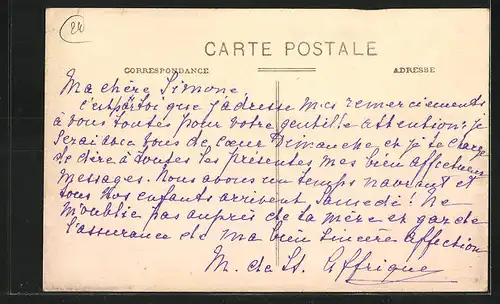 24
CARTE POSTALE
CORRESPONDANCE
ADRESSE
Ma chère Simone
c'est par toi que j'adresse mes remerciements
à vous toutes pour votre gentille attention : je
serai avec vous de cœur Dimanche, et je te charge
de dire à toutes les présentes mes bien affectueux
messages. Nous avons un temps navrant et
tous nos enfants arrivent samedi ! Ne
m'oublie pas auprès de ta mère et garde
l'assurance de ma bien sincère affection
M. de St. Affrique